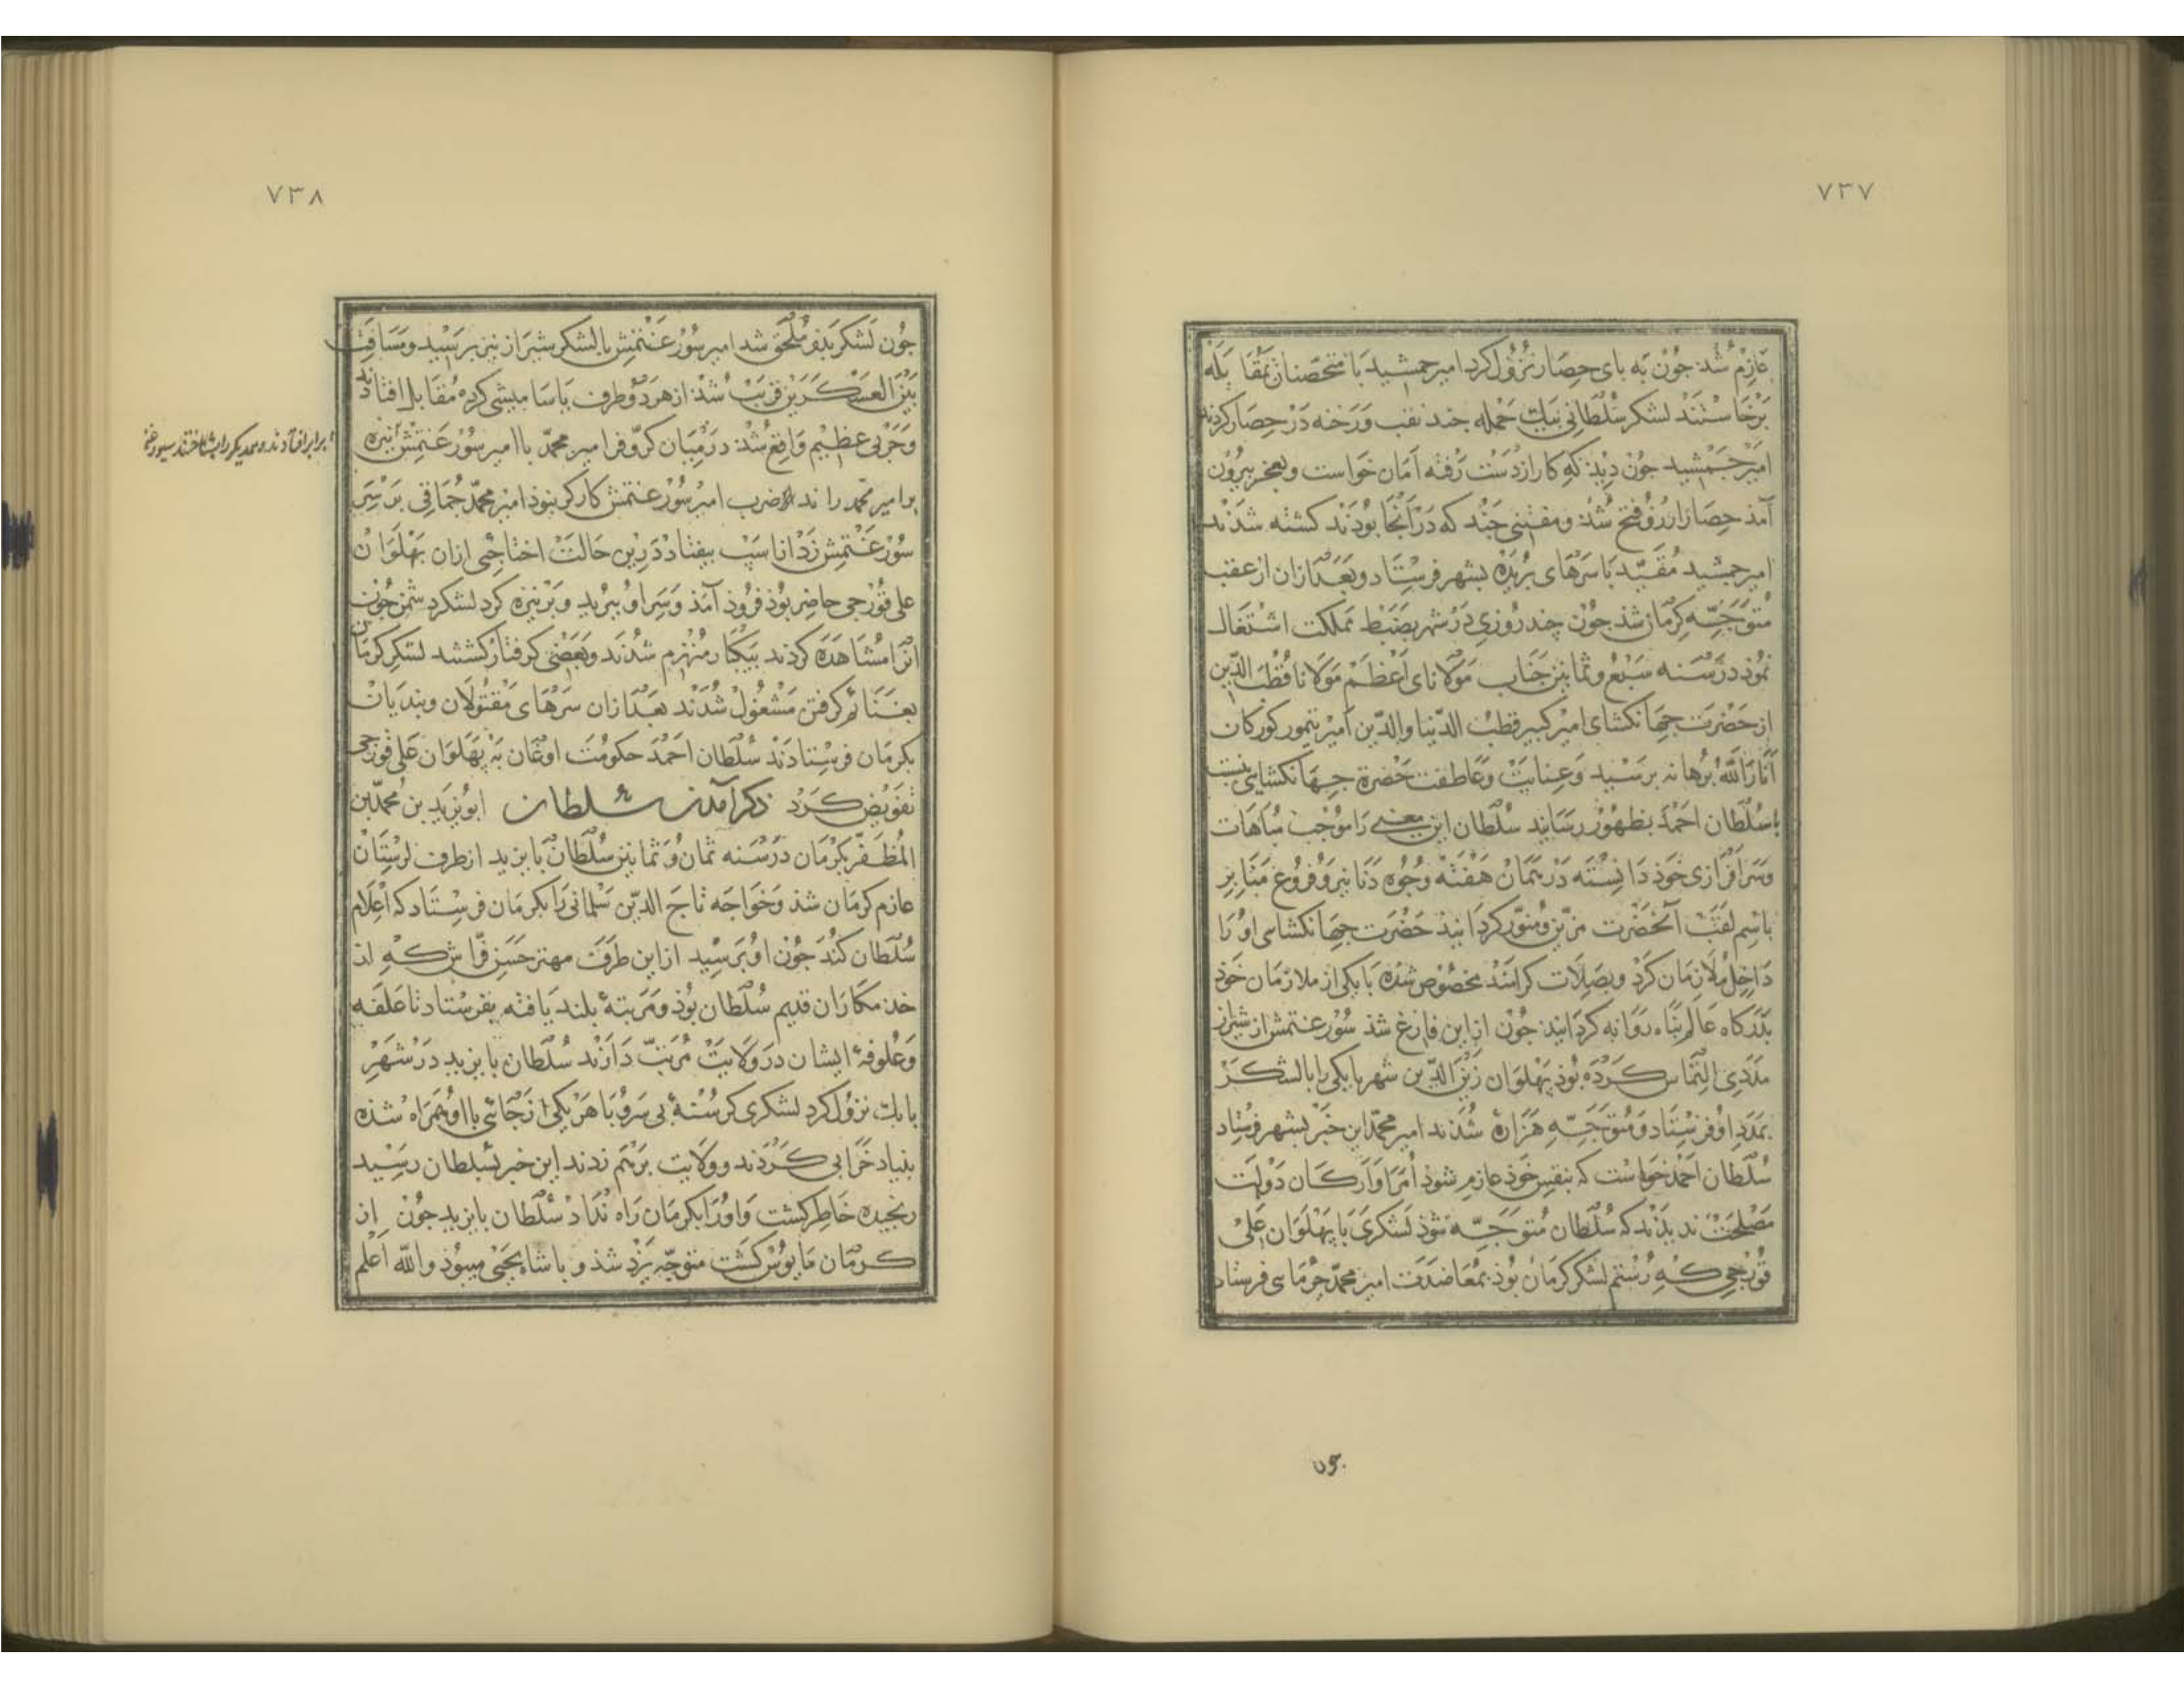 ۷۳۷
عازم شد جون به بای حصار نزول کرد امیر جمشید با متحصنان بمقابله
برخاستند لشکر سلطانی بیك حمله جند نقب و رخنه در حصار کردند
امیر جمشید جون دید که کار از دست رفته امان خواست و بعجز بیرون
آمد حصار ازرؤ فتح شد و مفتنی جند که در آنجا بودند کشته شدند
امیر جمشید مقید با سرهای بریده بشهر فرستاد و بعد ازان از عقب
متوجه کرمان شد جون چند روزی در شهر بضبط مملکت اشتغال
نموذ در سنه سبع و ثمانین جناب مولانای اعظم مولانا قطب الدین
از حضرت جهانکشای امیر کبیر قطب الدنیا والدین امیر تیمور کورکان
انار الله برهانه برسید و عنایت و عاطفت حضرة جهانکشایی نسبت
با سلطان احمد بظهور رسانید سلطان این معنی را موجب مباهات
و سرافرازی خوذ دانسته در همان هفته وجوه دنانیر و فروغ منابر
باسم لقب آنحضرت مزین و منور کردانید حضرت جهانکشای او را
داخل ملازمان کرد و بصلات کرامند مخصوص شده با یکی از ملازمان خوذ
بدرکاه عالم بناه روانه کردانید جون از این فارغ شد سورغتمش از شیراز
مددی التماس کرده بوذ پهلوان زین الدین شهر بابکی را با لشکر
بمدد او فرستاد و متوجه هزاره شدند امیر محمد این خبر بشهر فرستاد
سلطان احمد خواست که بنفس خوذ عازم شوذ امرا و ارکان دولت
مصلحت ندیدند که سلطان متوجه شوذ لشکری با پهلوان علی
قورجی که رستم لشکر کرمان بوذ بمعاضدت امیر محمد جرمای فرستاد
جون
۷۳۸
جون لشکر بذو ملحق شد امیر سورغتمش با لشکر شیراز نیز برسید و مسافت
بین العسکرین قریب شد از هر دو طرف یاسامیشی کرده مقابل افتادند
و حربی عظیم واقع شد در میان کر و فر امیر محمد با امیر سورغتمش نیزه
برابر افتادند و همدیکر را بشناختند
بر امیر محمد راند ضرب امیر سورغتمش کارکر نبوذ امیر محمد جماقی بر سر
سورغتمش زد از اسب بیفتاد در این حالت اختاجی ازان پهلوان
علی قورجی حاضر بوذ فروذ آمذ و سر او ببرید و بر نیزه کرد لشکر دشمن جون
انرا مشاهده کردند بیکبار منهزم شدند و بعضی کرفتار کشتند لشکر کرمان
بغنائم کرفتن مشغول شدند بعد ازان سرهای مقتولان و بندیان
بکرمان فرستادند سلطان احمد حکومت اوغان به پهلوان علی قورجی
تفویض کرد ذکر آمدن سلطان ابویزید بن محمد بن
المظفر بکرمان در سنه ثمان و ثمانین سلطان بایزید از طرف لرستان
عازم کرمان شذ و خواجه تاج الدین سلمانی را بکرمان فرستاد که اعلام
سلطان کند جون او برسید از این طرف مهتر حسن فراش که از
خدمتکاران قدیم سلطان بوذ و مرتبهٔ بلند یافته بفرستاد تا علفه
و علوفهٔ ایشان در ولایت مرتب دارند سلطان بایزید در شهر
بابك نزول کرد لشکری کرسنهٔ بی سر و پا هر یکی از جائی با او همراه شذه
بنیاد خرابی کردند و ولایت برهم زدند این خبر بسلطان رسید
رنجیده خاطر کشت و او را بکرمان راه نداد سلطان بایزید جون از
کرمان مایوس کشت متوجه یزد شذ و با شاه یحیی میبوذ والله اعلم